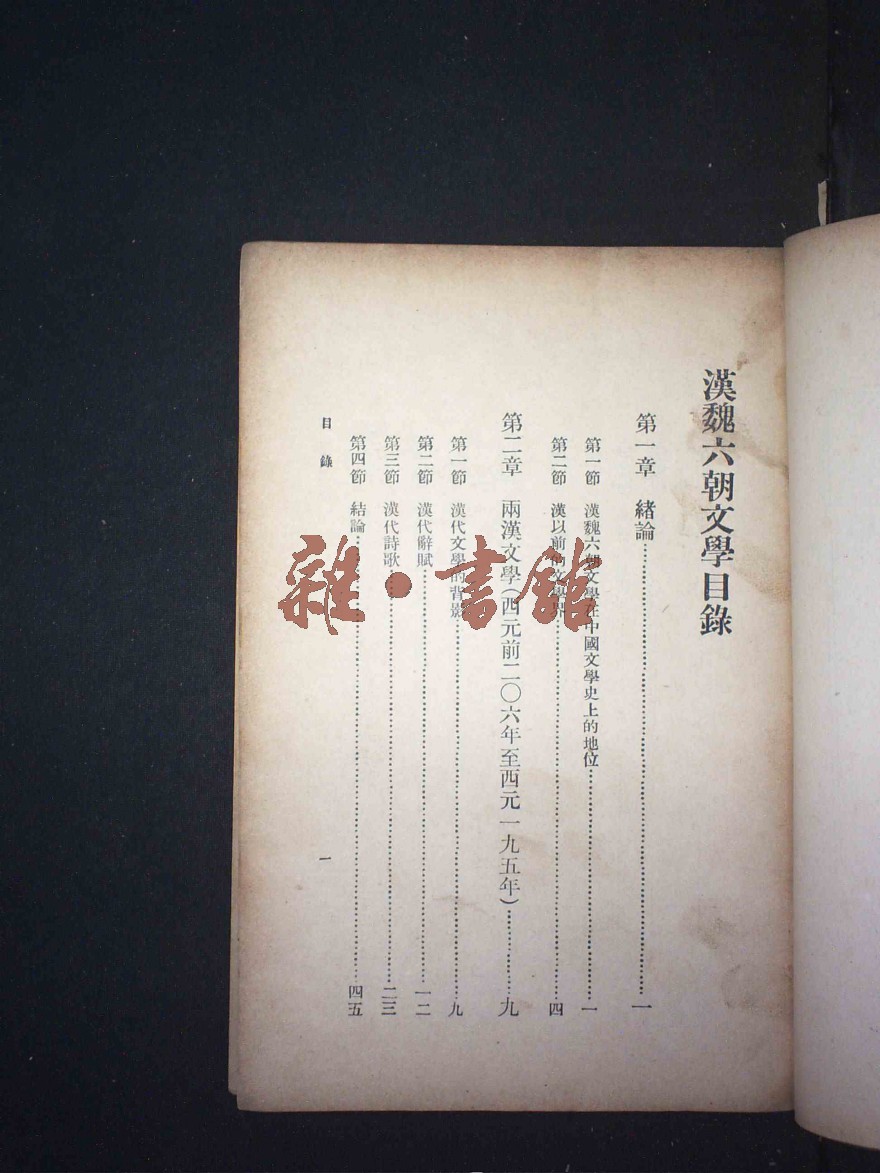 漢魏六朝文學目錄
第一章　緒論……一
第一節　漢魏六朝文學在中國文學史上的地位……一
第二節　漢以前的文學界……四
第二章　兩漢文學（西元前二〇六年至西元一九五年）……九
第一節　漢代文學的背影……九
第二節　漢代辭賦……一二
第三節　漢代詩歌……二三
第四節　結論……四五
目錄
一
雜·書館